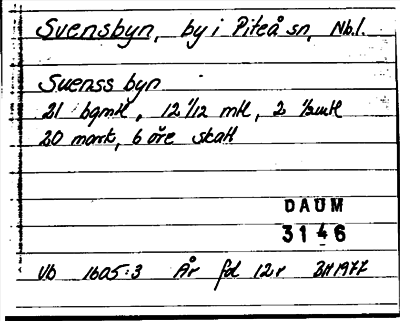 Svensbyn, by i Piteå sn, Nb.l.
Suenss byn
21 bgmtl, 12 1/12 mtl, 2 1/2mtl
20 mark, 6 öre skatt
DAUM
3146
Vb 1605:3 År fol 12r 1977